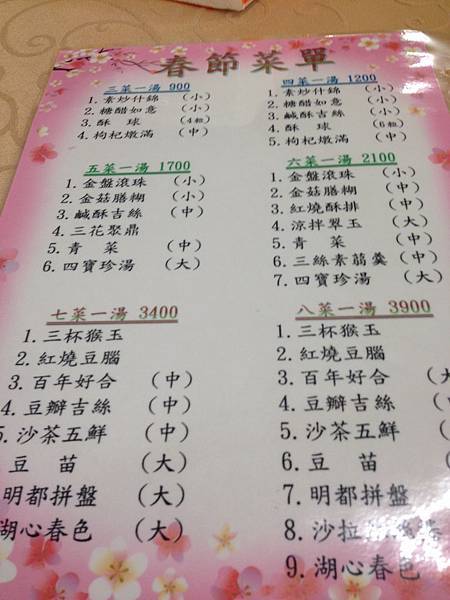 春節菜單
三菜一湯 900
1. 素炒什錦 (小)
2. 糖醋如意 (小)
3. 酥 球 (4粒)
4. 枸杞燉滿 (中)
四菜一湯 1200
1. 素炒什錦 (小)
2. 糖醋如意 (小)
3. 鹹酥吉絲 (小)
4. 酥 球 (6粒)
5. 枸杞燉滿 (中)
五菜一湯 1700
1. 金盤滾珠 (小)
2. 金菇膳糊 (小)
3. 鹹酥吉絲 (中)
4. 三花聚鼎
5. 青 菜 (中)
6. 四寶珍湯 (大)
六菜一湯 2100
1. 金盤滾珠 (小)
2. 金菇膳糊 (中)
3. 紅燒酥排 (中)
4. 涼拌翠玉 (大)
5. 青 菜 (中)
6. 三絲素翕羹 (中)
7. 四寶珍湯 (大)
七菜一湯 3400
1. 三杯猴玉
2. 紅燒豆腦
3. 百年好合 (中)
4. 豆瓣吉絲 (中)
5. 沙茶五鮮 (中)
豆 苗 (大)
明都拼盤 (大)
湖心春色 (大)
八菜一湯 3900
1. 三杯猴玉
2. 紅燒豆腦
3. 百年好合 (大
4. 豆瓣吉絲 (
5. 沙茶五鮮 (
6. 豆 苗 (
7. 明都拼盤 (
8. 沙拉
9. 湖心春色 (